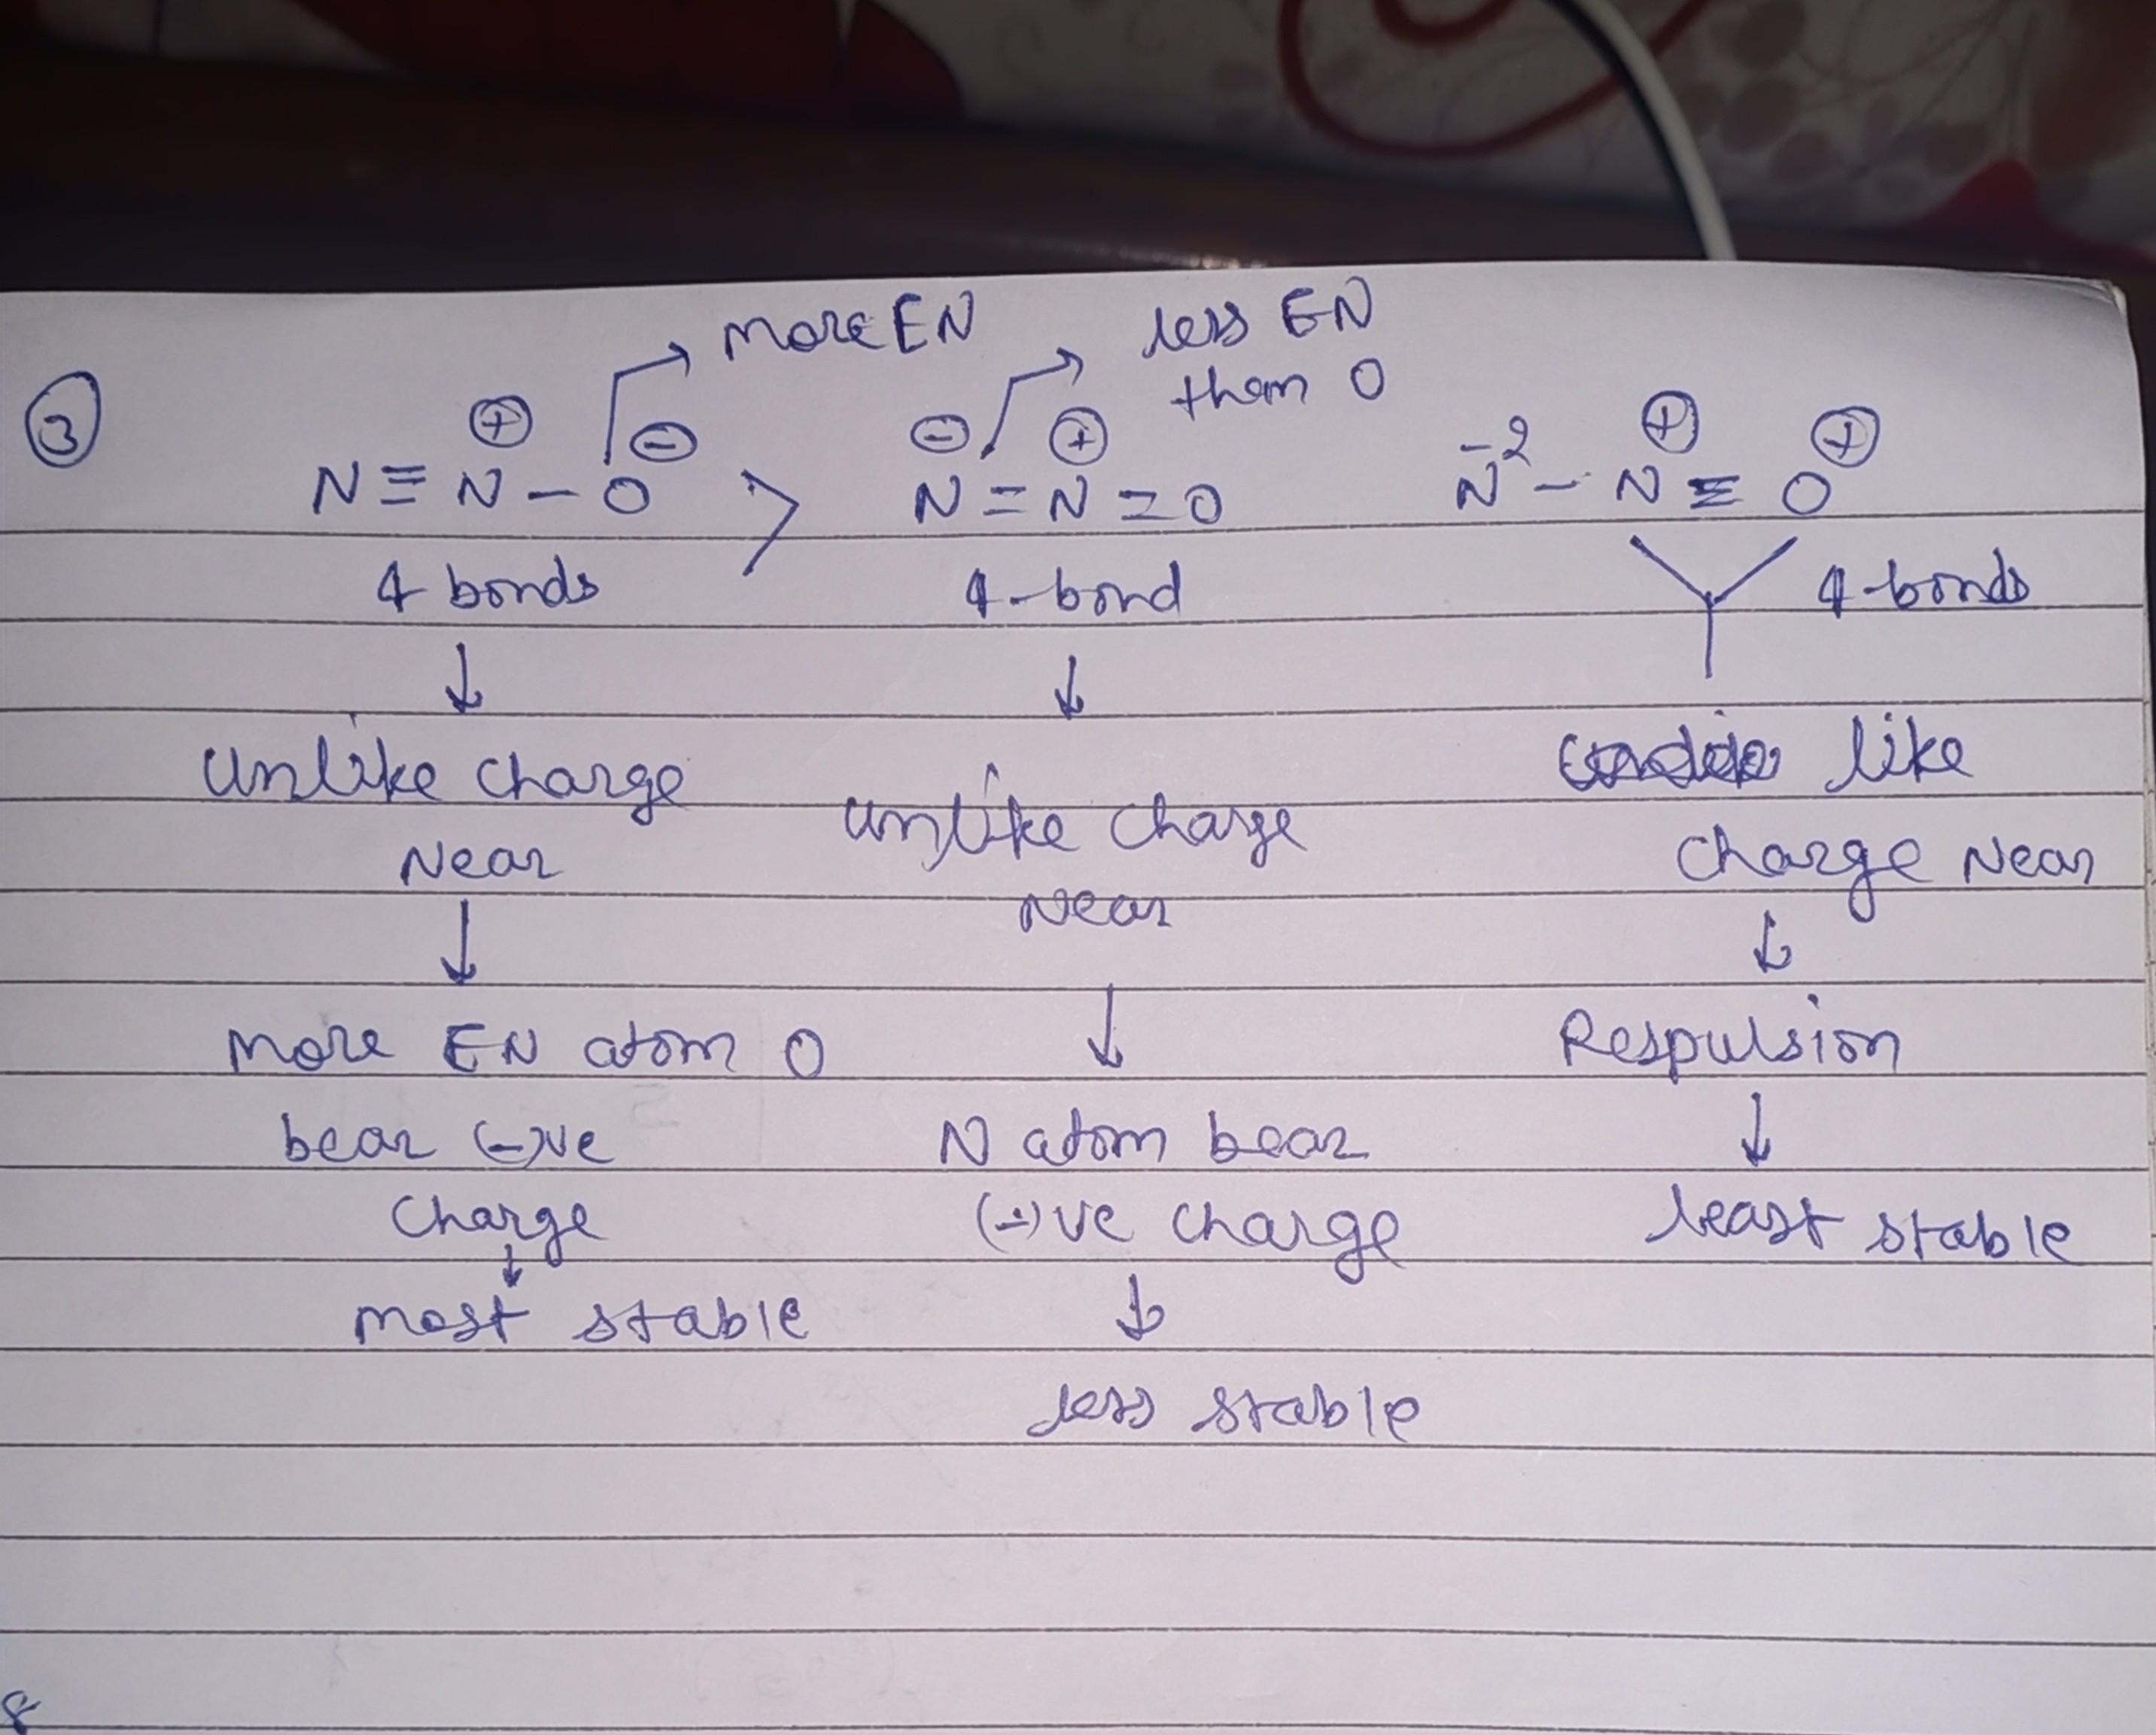 more EN
less EN
them O
③
⊕ ⊖
N ≡ N - O >
⊖ ⊕
N = N = O
⊕ ⊕
N⁻² - N ≡ O
4 bonds
4-bond
4-bonds
↓
↓
unlike charge
Near
↓
more EN atom O
bear (-)ve
charge
↓
most stable
unlike charge
Near
↓
N atom bear
(-)ve charge
↓
less stable
like
charge Near
↓
Respulsion
↓
least stable